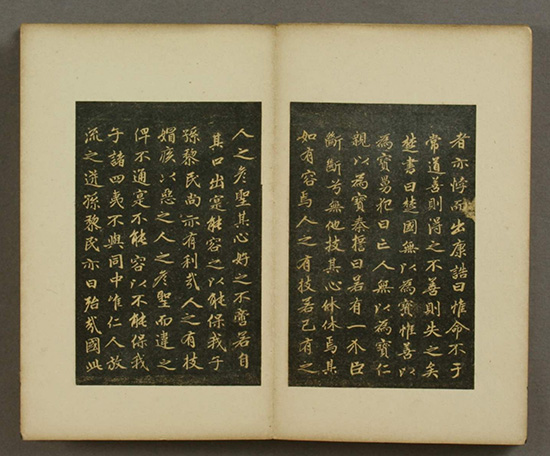 者亦悖而出康誥曰惟命不于
常道善則得之不善則失之矣
楚書曰楚國無以為寶惟善以
為寶舅犯曰亡人無以為寶仁
親以為寶秦誓曰若有一介臣
斷斷兮無他技其心休休焉其
如有容焉人之有技若己有之
人之彥聖其心好之不啻若自
其口出寔能容之以能保我子
孫黎民尚亦有利哉人之有技
媢疾以惡之人之彥聖而違之
俾不通寔不能容以不能保我
子諸四夷不與同中唯仁人放
流之迸孫黎民亦曰殆哉國此